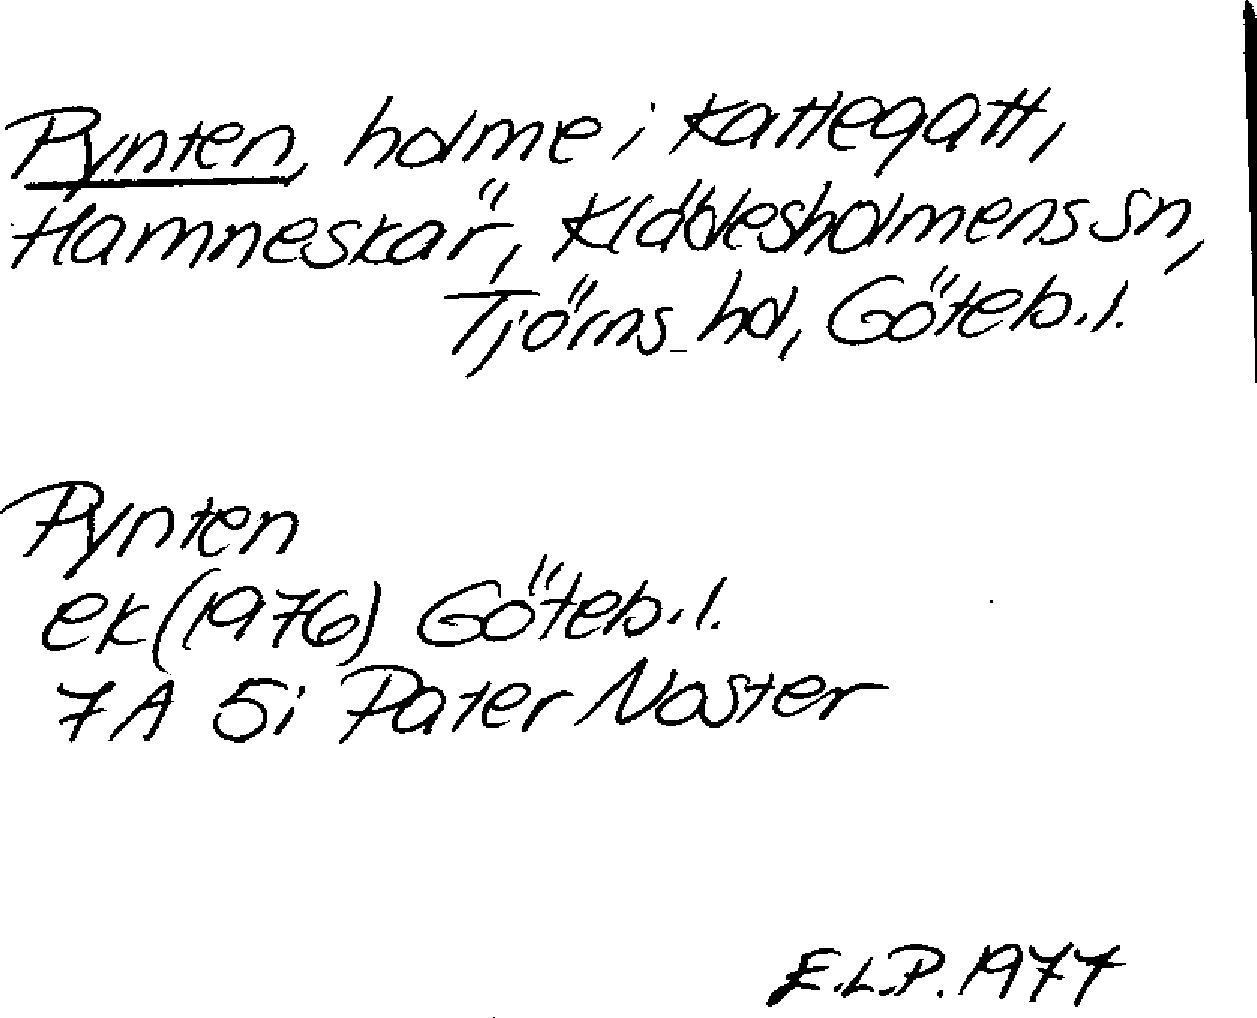 Pynten, holme i Kattegatt,
Hamneskär, Klädesholmens sn,
Tjörns hd, Göteb.l.
Pynten
ek (1976) Göteb.l.
7A 5i Pater Noster
E.L.P. 1977